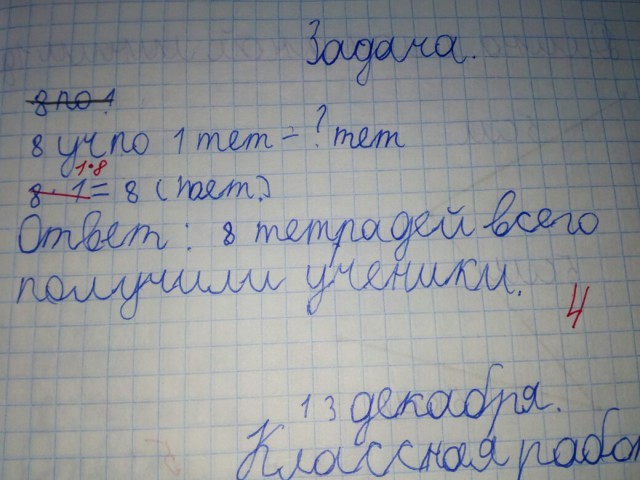 Задача.
8 по 1
8 уч по 1 тет = ? тет
1·8
8 · 1 = 8 (тет.)
Ответ: 8 тетрадей всего
получили ученики.
4
13 декабря.
Классная рабо